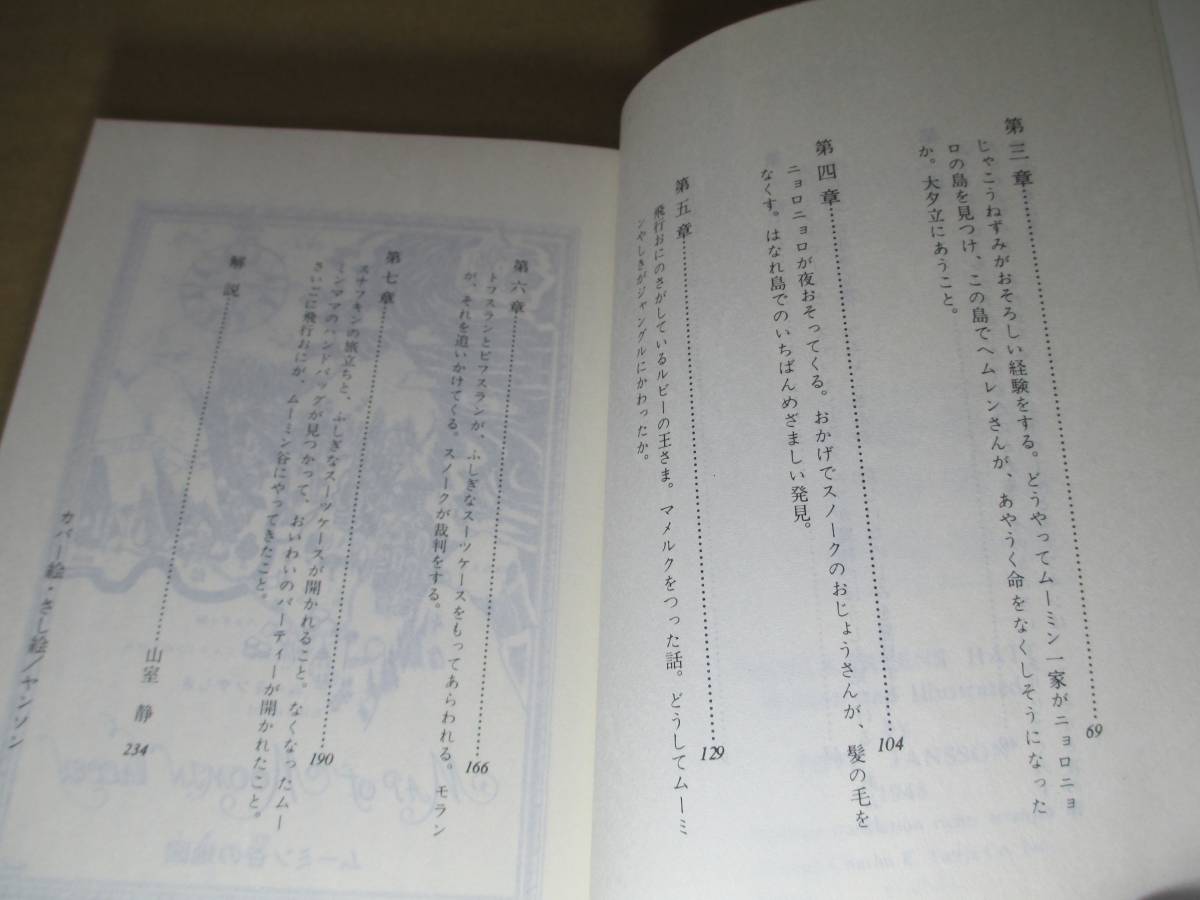 第三章……69
じゃこうねずみがおそろしい経験をする。どうやってムーミン一家がニョロニョ
ロの島を見つけ、この島でヘムレンさんが、あやうく命をなくしそうになった
か。大夕立にあうこと。
第四章……104
ニョロニョロが夜おそってくる。おかげでスノークのおじょうさんが、髪の毛を
なくす。はなれ島でのいちばんめざましい発見。
第五章……129
飛行おにのさがしているルビーの王さま。マメルクをつった話。どうしてムーミ
ンやしきがジャングルにかわったか。
第六章……166
トフスランとビフスランが、ふしぎなスーツケースをもってあらわれる。モラン
が、それを追いかけてくる。スノークが裁判をする。
第七章……190
スナフキンの旅立ちと、ふしぎなスーツケースが開かれること。なくなったムー
ミンママのハンドバッグが見つかって、おいわいのパーティーが開かれたこと。
さいごに飛行おにが、ムーミン谷にやってきたこと。
解説……山室 静 234
カバー絵・さし絵/ヤンソン
MAP of MOOMIN VALLEY
ムーミン谷の地図